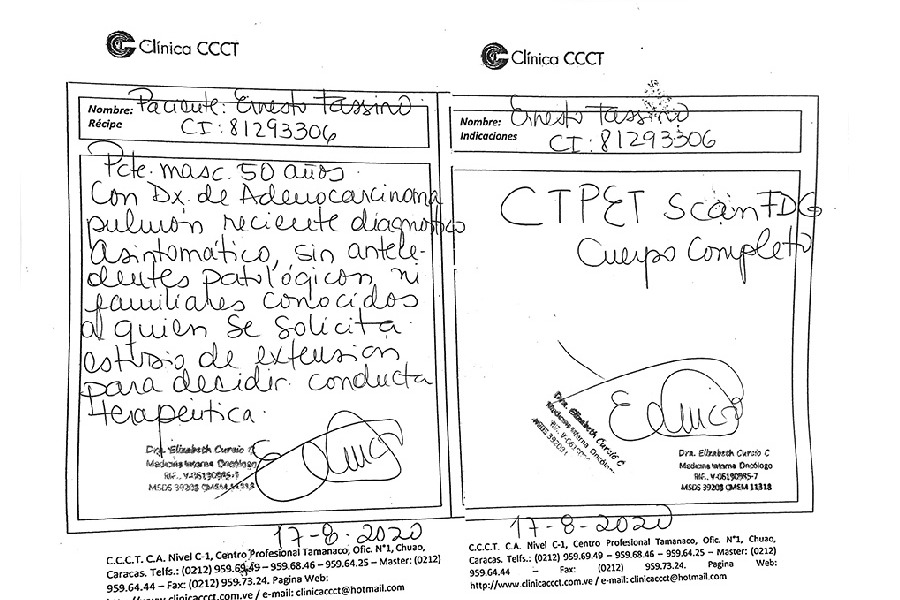 Clínica CCCT
Nombre: Paciente: Ernesto Tassino
Récipe CI: 81293306
Pcte. masc. 50 años.
Con Dx. de Adenocarcinoma
pulmón reciente diagnóstico
Asintomático, sin antece-
dentes patológicon ni
familiares conocidos
al quien se solicita
estudio de extensión
para decidir conducta
terapéutica.
Dra. Elizabeth Curcio C
Medicina Interna Oncólogo
RIF.: V-06190985-7
MSDS 39203 CMEM 11318
17-8-2020
C.C.C.T. C.A. Nivel C-1, Centro Profesional Tamanaco, Ofic. N°1, Chuao,
Caracas. Telfs.: (0212) 959.69.49 – 959.68.46 – 959.64.25 – Master: (0212)
959.64.44 – Fax: (0212) 959.73.24. Pagina Web:
http://www.clinicaccct.com.ve / e-mail: clinicaccct@hotmail.com
Clínica CCCT
Nombre: Ernesto Tassino
Indicaciones CI: 81293306
CTPET Scan FDG
Cuerpo Completo
Dra. Elizabeth Curcio C
Medicina Interna Oncólogo
Dra. Elizabeth Curcio C
Medicina Interna Oncólogo
RIF.: V-06190985-7
MSDS 39203 CMEM 11318
17-8-2020
C.C.C.T. C.A. Nivel C-1, Centro Profesional Tamanaco, Ofic. N°1, Chuao,
Caracas. Telfs.: (0212) 959.69.49 – 959.68.46 – 959.64.25 – Master: (0212)
959.64.44 – Fax: (0212) 959.73.24. Pagina Web:
http://www.clinicaccct.com.ve / e-mail: clinicaccct@hotmail.com